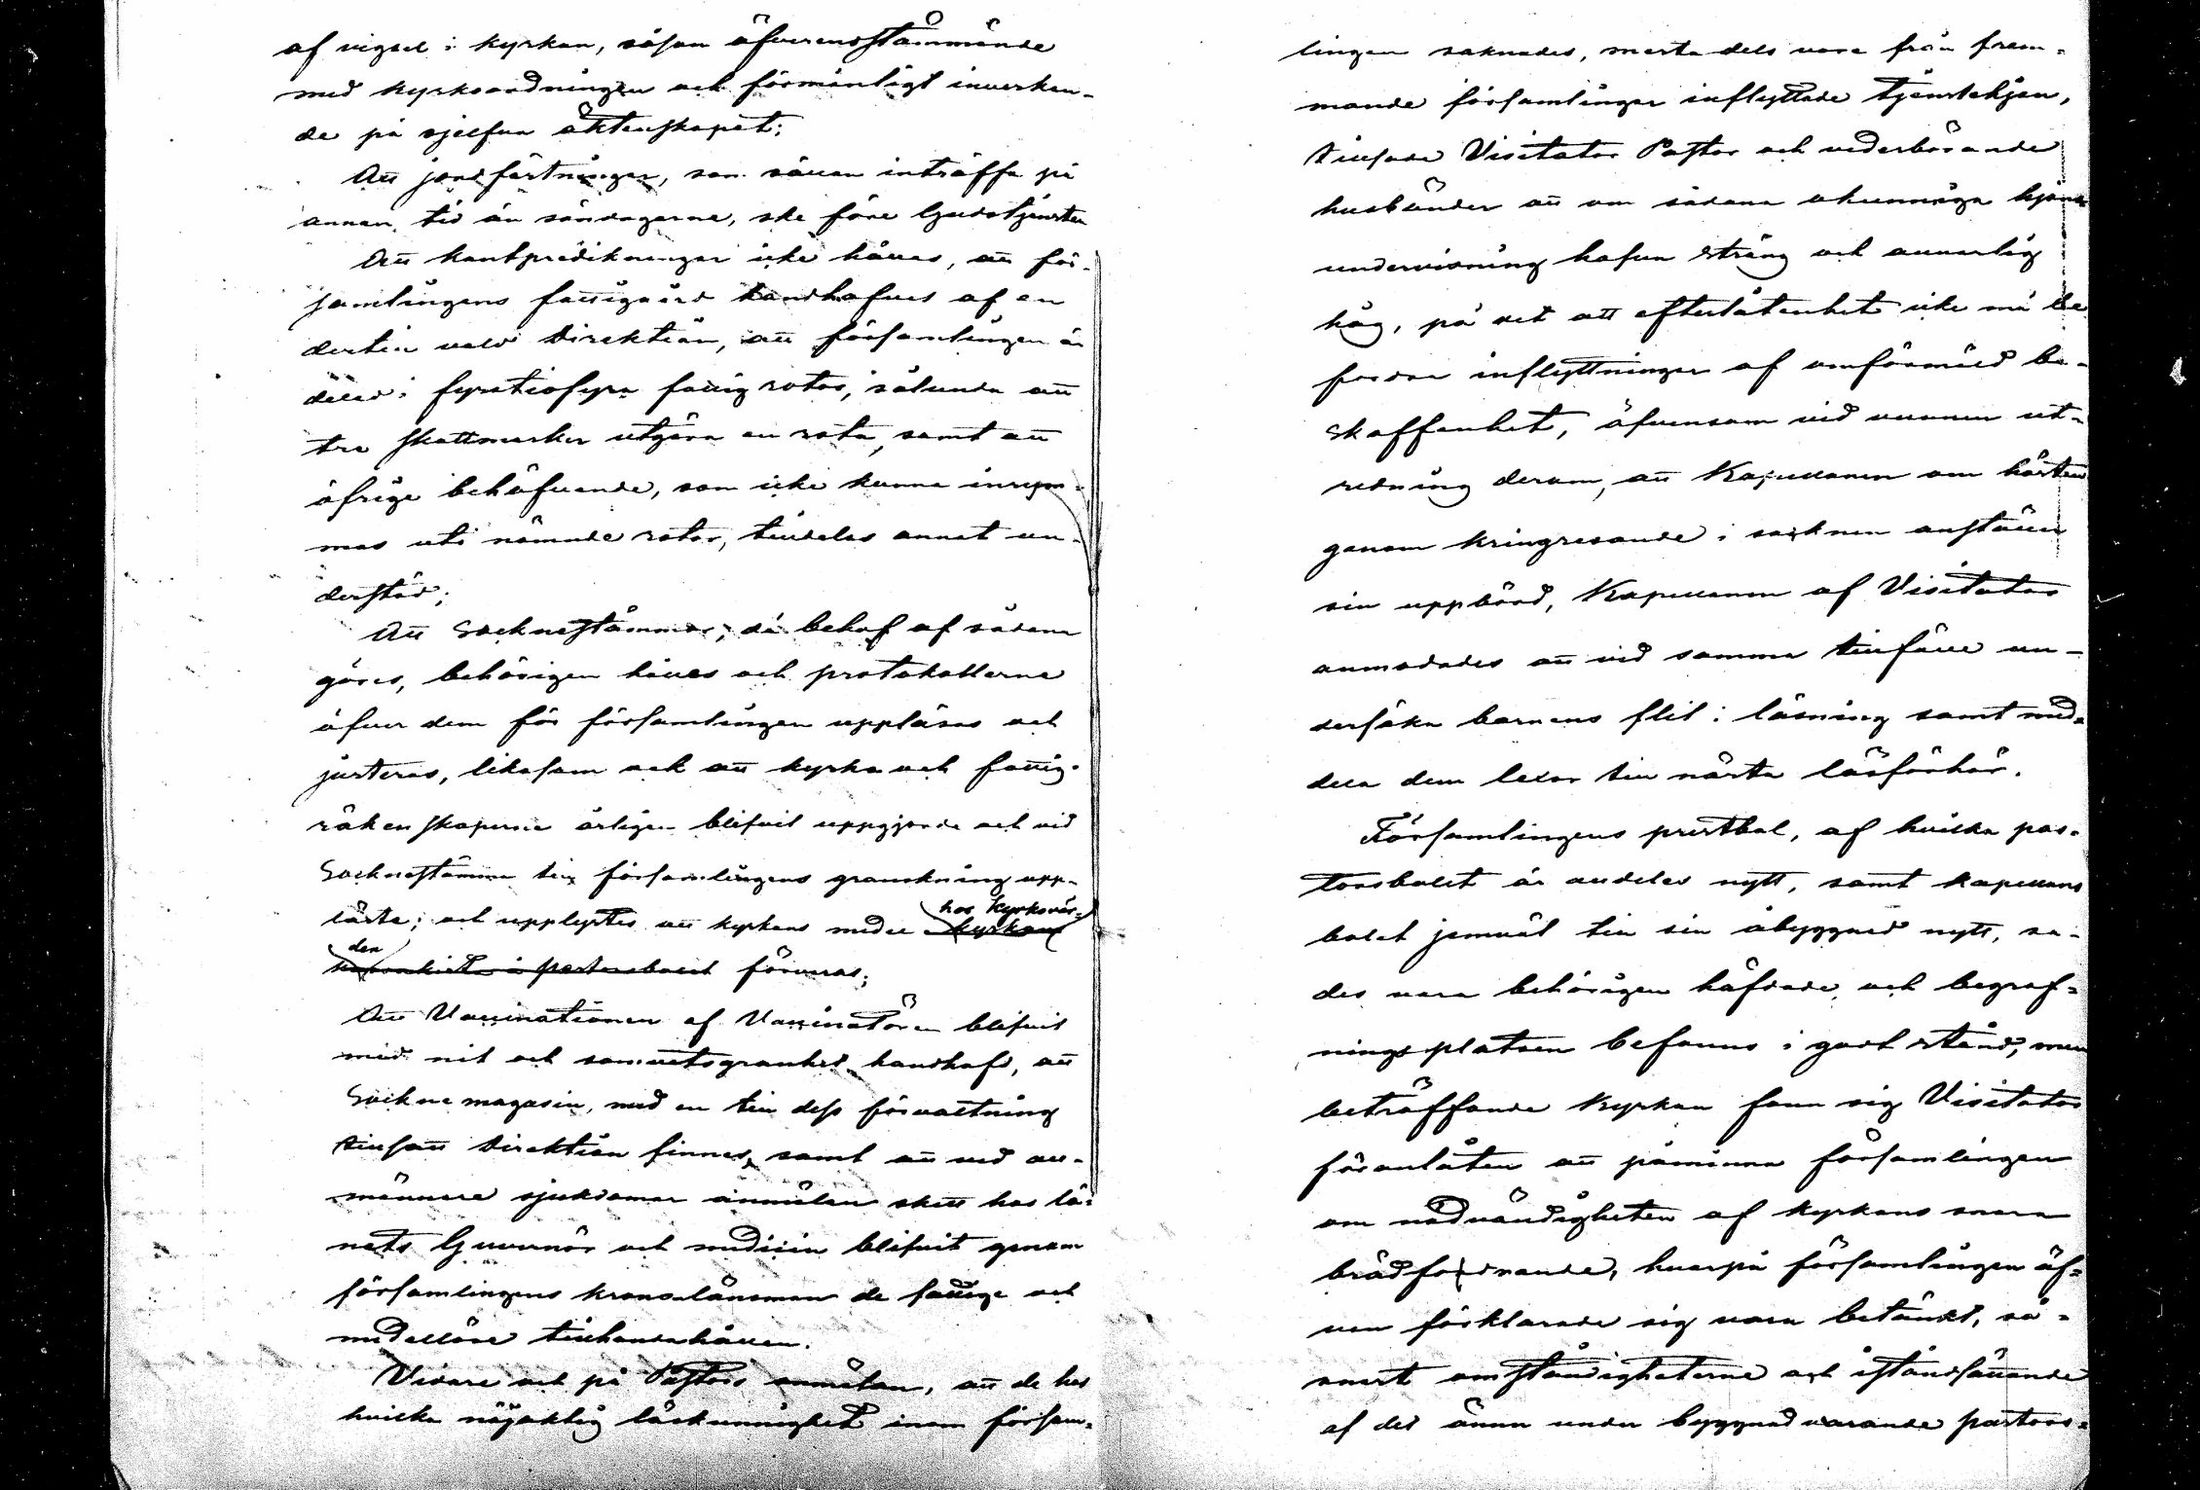 af vigsel i kyrkan, såsom öfverensstämmande
med kyrkoordningen och förmånligt inverkan-
de på sjelfva äktenskapet;
Att jordfästningar, som sällan inträffa på
annan tid än söndagarne, ske före Gudstjensten
Att hemtpredikningar icke hålles, att för-
samlingens fattigvård handhafves af en
dertill vald Direktion, att församlingen är
delad i fyratiofyra fattig rotar, sålunda att
tre skattmarker utgöra en rota, samt att
öfrige behöfvande, som icke kunna inrym-
mas uti nämnde rotar, tilldelas annat un-
derstöd;
Att Socknestämmor, då behof af sådane
göres, behörigen hålles och protokollerne
öfver dem för församlingen uppläsas och
justeras, likasom ock att kyrko och fattig-
räkenskaperne årligen blifvit uppgjorde och vid
Socknestämma till församlingens granskning upp-
läste; och upplystes att kyrkans medel kyrkans
hos Kyrkovär-
den
i pastorsbolet förvaras;
Att Vaccinationen af Vaccinatören blifvit
med nit och samvetsgranhet handhafd, att
Sockne magasin, med en till dess förvaltning
tillsatt Direktion finnes, samt att vid all-
männare sjukdomar anmälan skett hos lä-
nets Guvernör och medicin blifvit genom
församlingens kronolänsman de fattige och
medellöse tillhandahållen.
Vidare och på Pastors anmälan, att de hos
hvilka nöjaktig läskunnighet inom försam-
lingen saknades, mesta dels voro från främ-
mande församlingar inflyttade tjenstehjon,
tillsade Visitator Pastor och vederbörande
husbönder att om sådana okunniga hjons
undervisning hafva sträng och allvarlig
håg, på det att efterlåtenhet icke må be
fordra inflyttningar af omförmäld be-
skaffenhet, äfvensom vid vunnen ut-
redning derom, att Kapellanen om hösten
genom kringresande i socknen anställer
sin uppbörd, Kapellanen af Visitator
anmodades att vid samma tillfälle un-
dersöka barnens flit i läsning samt med-
dela dem lexor till nästa läsförhör.
Församlingens prestbol, af hvilka pas-
torsbolet är alldeles nytt, samt kapellans
bolet jemväl till sin åbyggnad nytt, sa-
des vara behörigen häfdade och begraf-
ningsplatsen befanns i godt stånd, men
beträffande Kyrkan fann sig Visitator
föranlåten att påminna församlingen
om nödvändigheten af kyrkans snara
brädfordrande, hvarpå församlingen äf-
ven förklarade sig vara betänkt, så-
snart omständigheterne och iståndsättande
af det ännu under byggnad varande pastors-